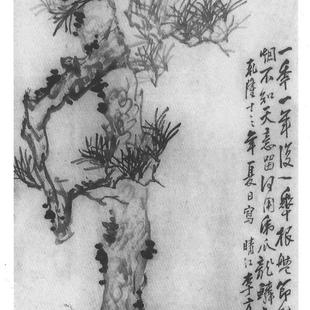 一年一年復一年根盤節
烟不知天意留何用虎爪龍鱗
乾隆十三年夏日寫 晴江李方